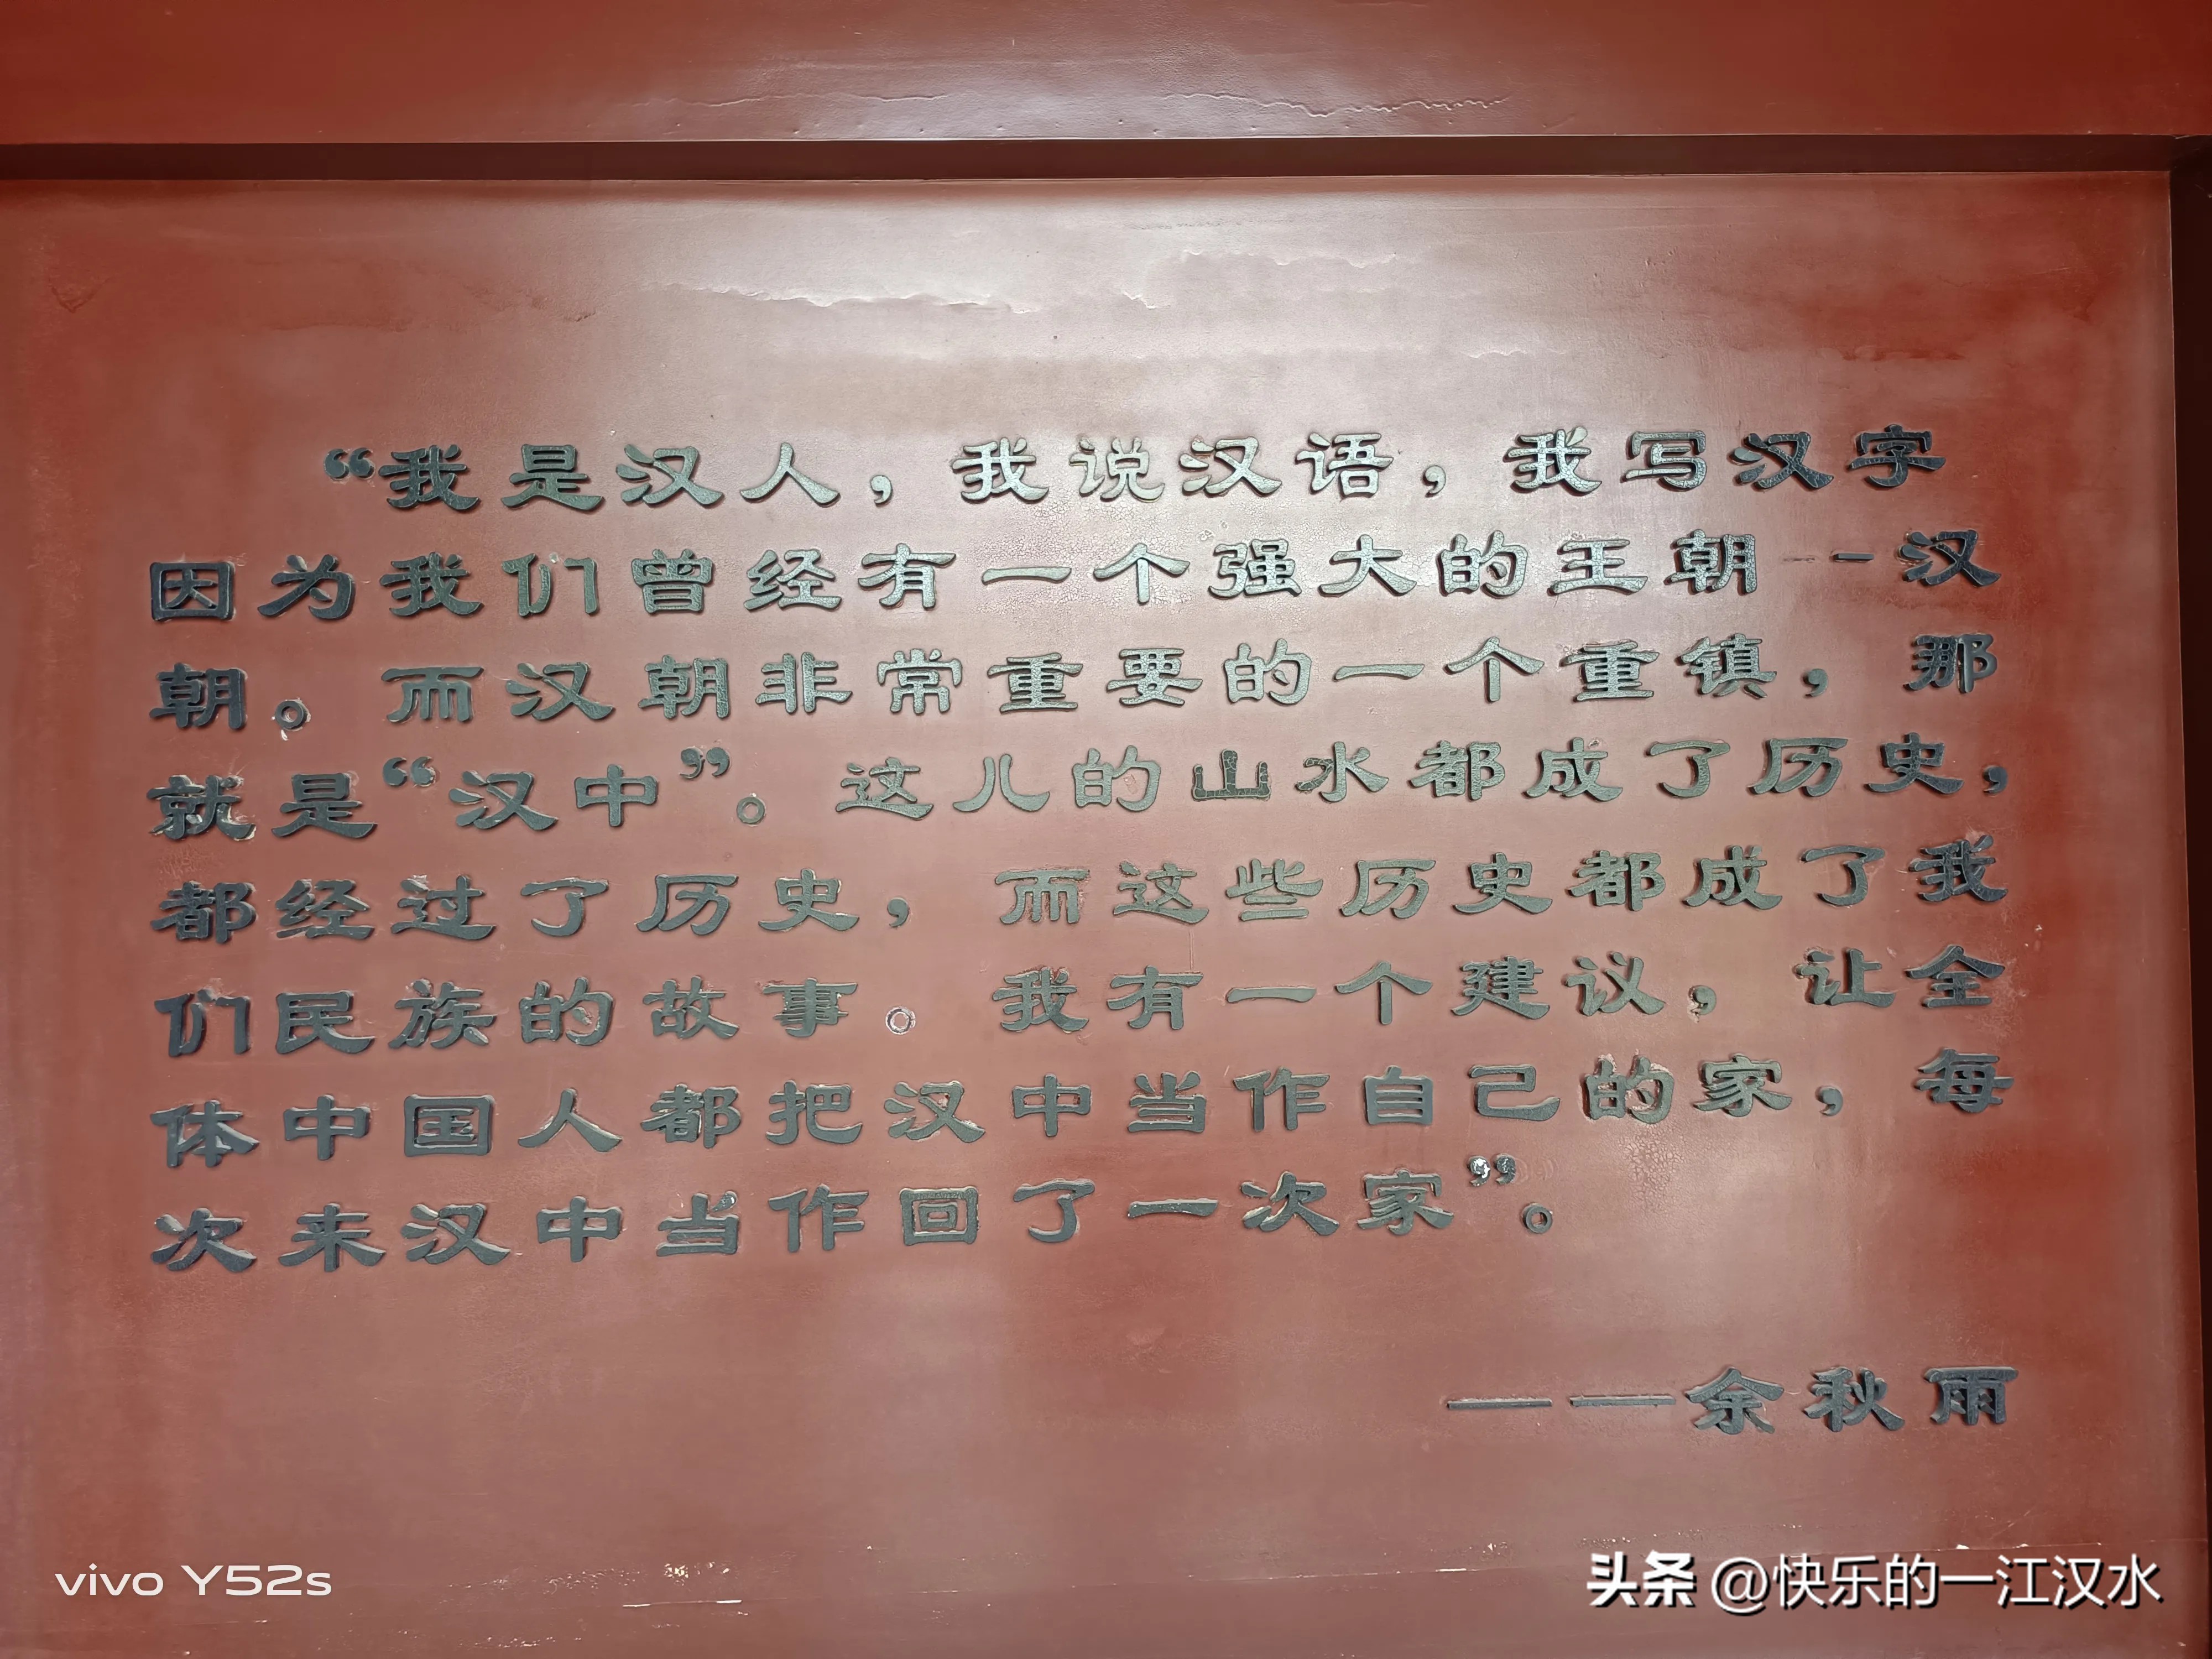 “我是汉人，我说汉语，我写汉字
因为我们曾经有一个强大的王朝--汉
朝。而汉朝非常重要的一个重镇，那
就是“汉中”。这儿的山水都成了历史，
都经过了历史，而这些历史都成了我
们民族的故事。我有一个建议，让全
体中国人都把汉中当作自己的家，每
次来汉中当作回了一次家”。
——余秋雨
vivo Y52s
头条 @快乐的一江汉水